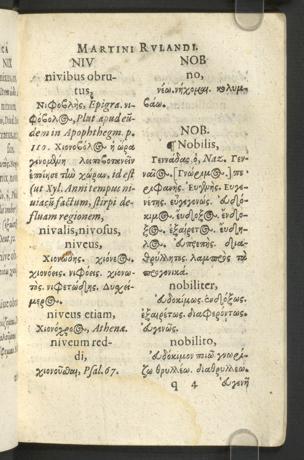 MARTINI RVLANDI.
NIV
nivibus obru-
tus,
Νιφοβλής, Epigrā. νι-
φόβολ@, Plut apud eū-
dem in Apophthegm. p.
110. Χιονοβόλ@ ἡ ὥρα
γενομένη
ἐποίησε τὼ χώραν, id est
ut Xyl. Anni tempus ni-
niacū factum, stirpi de-
fluam regionem,
nivalis, nivosus,
niveus,
Χιονώδης, χιόνε@,
χιονόεις. νιφόεις. χιονω-
τός. νιφετώδης. Δυσχεί-
μερ@.
niveus etiam,
Χιονόχρο@, Athena.
niveum red-
di,
χιονοῦθαι, Psal. 67.
NOB
no,
νέω. νήχομαι. κολυμ-
βάω.
NOB.
¶ Nobilis,
Γεννάδας ὁ, Naz. Γεν-
ναῖ@. Γνώριμ@. ἐπε-
Εὐγενὴς. Εὐγε-
νέτης. εὐηγενὴς. εὐδό-
κιμ@. εὔδοξ@. ἔνδο-
ξ@. ἐξαίρετ@. ἔνδη-
λ@. εὐπρεπής. δια-
θρύλλητος. λαμπρὸς τὰ
περσονικά.
nobiliter,
εὐδοκίμως. ἐνδόξως.
ἐξαιρέτως. διαφερόντως.
εὐγενῶς.
nobilito,
εὐδόκιμον ποιῶ γνωρί-
ζω θρυλλέω. διαθρυλλέω.
q 4
εὐγενῆ